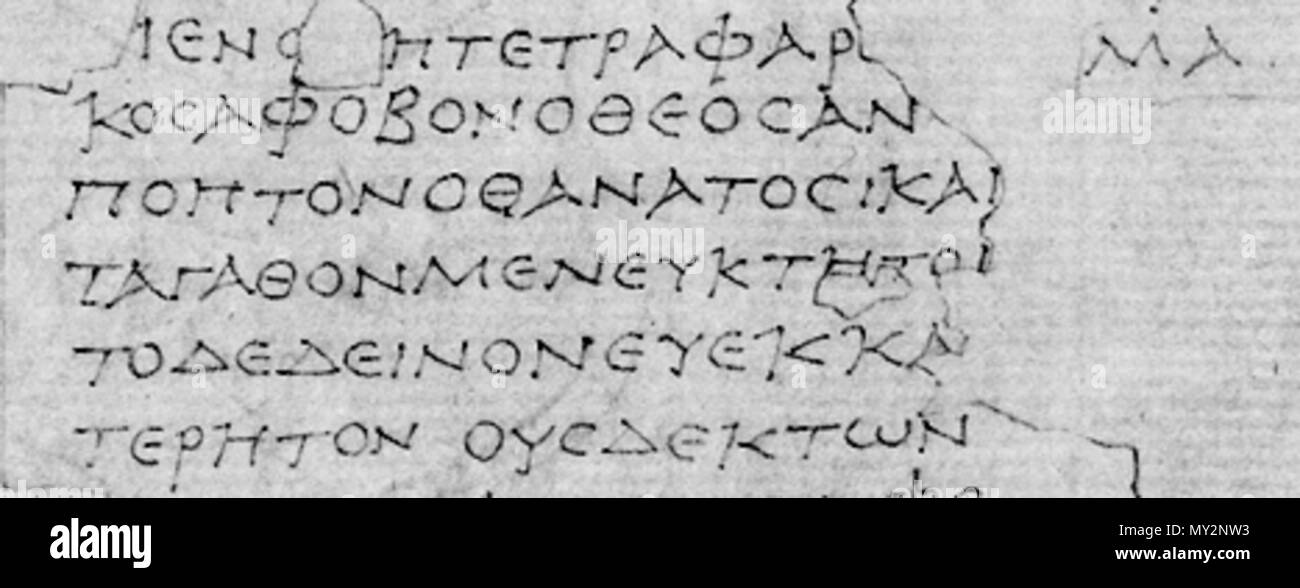 ΙΕΝΟ ΗΤΕΤΡΑΦΑΡ ΜΑ
ΚΟϹΑΦΟΒΟΝΟΘΕΟϹΑΝ
ΠΟΠΤΟΝΟΘΑΝΑΤΟϹΙΚΑΙ
ΤΑΓΑΘΟΝΜΕΝΕΥΚΤΗΤΟΙ
ΤΟΔΕΔΕΙΝΟΝΕΥΕΚΚΑ
ΤΕΡΗΤΟΝ ΟΥϹΔΕΚΤΩΝ
alamy
MY2NW3
www.alamy.com